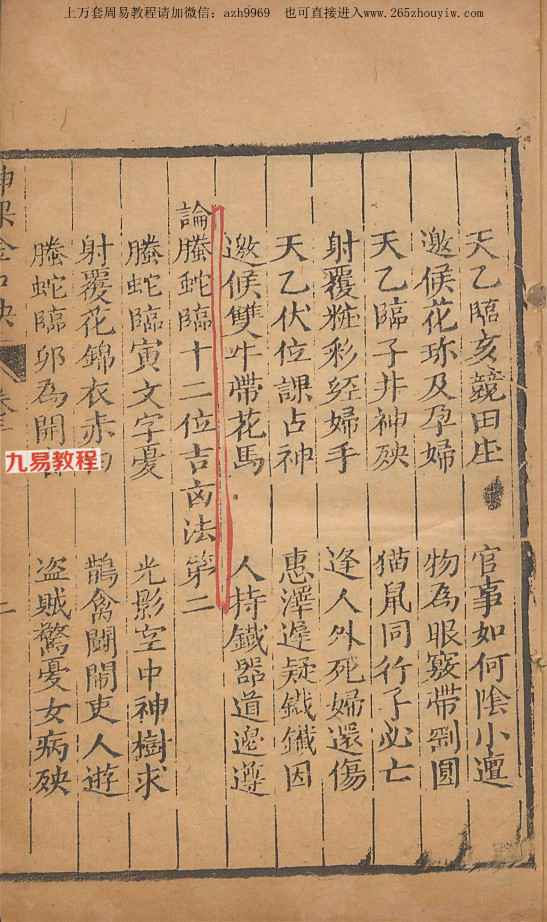 上万套周易教程请加微信：azh9969　也可直接进入www.265zhouyiw.com
天乙臨亥競田庄　官事如何陰小邅
邀候花珎及孕婦　物為眼竅帶劄圓
天乙臨子井神殃　猫鼠同行子必亡
射覆粧彩經婦手　逢人外死婦還傷
天乙伏位課占神　惠澤遲疑鐡鐡因
邀候雙牛帶花馬　人持鐡器道邊遵
論螣蛇臨十二位吉凶法第二
螣蛇臨寅文字憂　光影空中神樹求
射覆花錦衣赤　鵲禽鬬閙吏人遊
螣蛇臨卯為開　盗賊驚憂女病殃
金口訣
九易教程